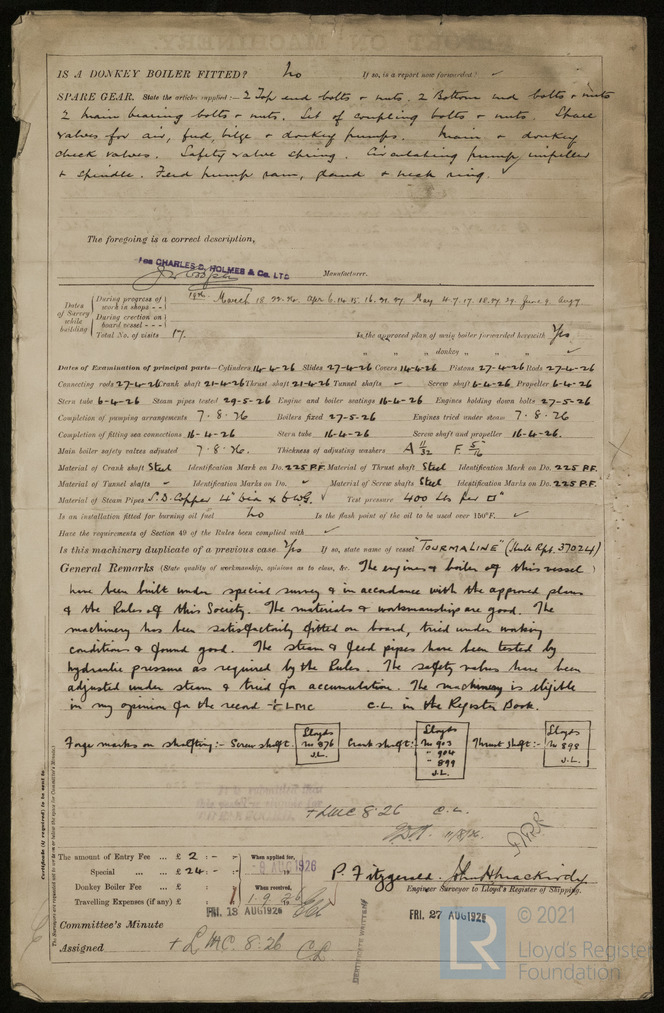 IS A DONKEY BOILER FITTED? No If so, is a report now forwarded? ✓
SPARE GEAR. State the articles supplied:— 2 Top end bolts & nuts. 2 Bottom end bolts & nuts
2 main bearing bolts & nuts. Set of coupling bolts & nuts. Spare
valves for air, feed, bilge & donkey pumps. Main & donkey
check valves. Safety valve spring. Circulating pump impeller
& spindle. Feed pump ram, gland & neck ring. ✓
The foregoing is a correct description,
For CHARLES D. HOLMES & Co. LTD
Manufacturer.
Dates of Survey while building
During progress of work in shops - -
1926. March 18. 22. 26. Apr 6. 14. 15. 16. 21. 27. May 4. 7. 17. 18. 27. 29. June 9. Aug 7
During erection on board vessel - - -
Total No. of visits 17. Is the approved plan of main boiler forwarded herewith Yes
" " " donkey " " " ✓
Dates of Examination of principal parts—Cylinders 14-4-26 Slides 27-4-26 Covers 14-4-26 Pistons 27-4-26 Rods 27-4-26
Connecting rods 27-4-26 Crank shaft 21-4-26 Thrust shaft 21-4-26 Tunnel shafts - Screw shaft 6-4-26 Propeller 6-4-26
Stern tube 6-4-26 Steam pipes tested 29-5-26 Engine and boiler seatings 16-4-26 Engines holding down bolts 27-5-26
Completion of pumping arrangements 7.8.26 Boilers fixed 27-5-26 Engines tried under steam 7.8.26
Completion of fitting sea connections 16-4-26 Stern tube 16-4-26 Screw shaft and propeller 16-4-26.
Main boiler safety valves adjusted 7.8.26. Thickness of adjusting washers A 11/32 F. 5/16
Material of Crank shaft Steel Identification Mark on Do. 225 P.F. Material of Thrust shaft Steel Identification Mark on Do. 225 P.F.
Material of Tunnel shafts - Identification Marks on Do. ✓ Material of Screw shafts Steel Identification Marks on Do. 225 P.F.
Material of Steam Pipes S.D. Copper 4" dia x 6 W.G. ✓ Test pressure 400 lbs per □"
Is an installation fitted for burning oil fuel No Is the flash point of the oil to be used over 150°F. ✓
Have the requirements of Section 49 of the Rules been complied with ✓
Is this machinery duplicate of a previous case Yes If so, state name of vessel "TOURMALINE" (Hull Rpt. 37024)
General Remarks (State quality of workmanship, opinions as to class, &c. The engines & boiler of this vessel
have been built under special survey & in accordance with the approved plans
& the Rules of this Society. The materials & workmanship are good. The
machinery has been satisfactorily fitted on board, tried under working
conditions & found good. The steam & feed pipes have been tested by
hydraulic pressure as required by the Rules. The safety valves have been
adjusted under steam & tried for accumulation. The machinery is eligible
in my opinion for the record + LMC C.L. in the Register Book.
Forge marks on shafting:- Screw shaft. Lloyds No 876 J.L. Crank shaft:- Lloyds No 903 " 904 " 899 J.L. Thrust shaft:- Lloyds No 898 J.L.
+ LMC 8.26 C.L.
11/8/26.
Certificate (if required) to be sent to
The amount of Entry Fee ... £ 2 : - : When applied for,
Special ... ... £ 24 : - : 9 AUG 1926
Donkey Boiler Fee ... £ : : When received,
Travelling Expenses (if any) £ : : 1.9.26
P. Fitzgerald.
Engineer Surveyor to Lloyd's Register of Shipping.
Committee's Minute FRI. 13 AUG 1926 FRI. 27 AUG 1926
Assigned + LMC. 8.26 C.L.
CERTIFICATE WRITTEN
© 2021
LR
Lloyd's Register
Foundation